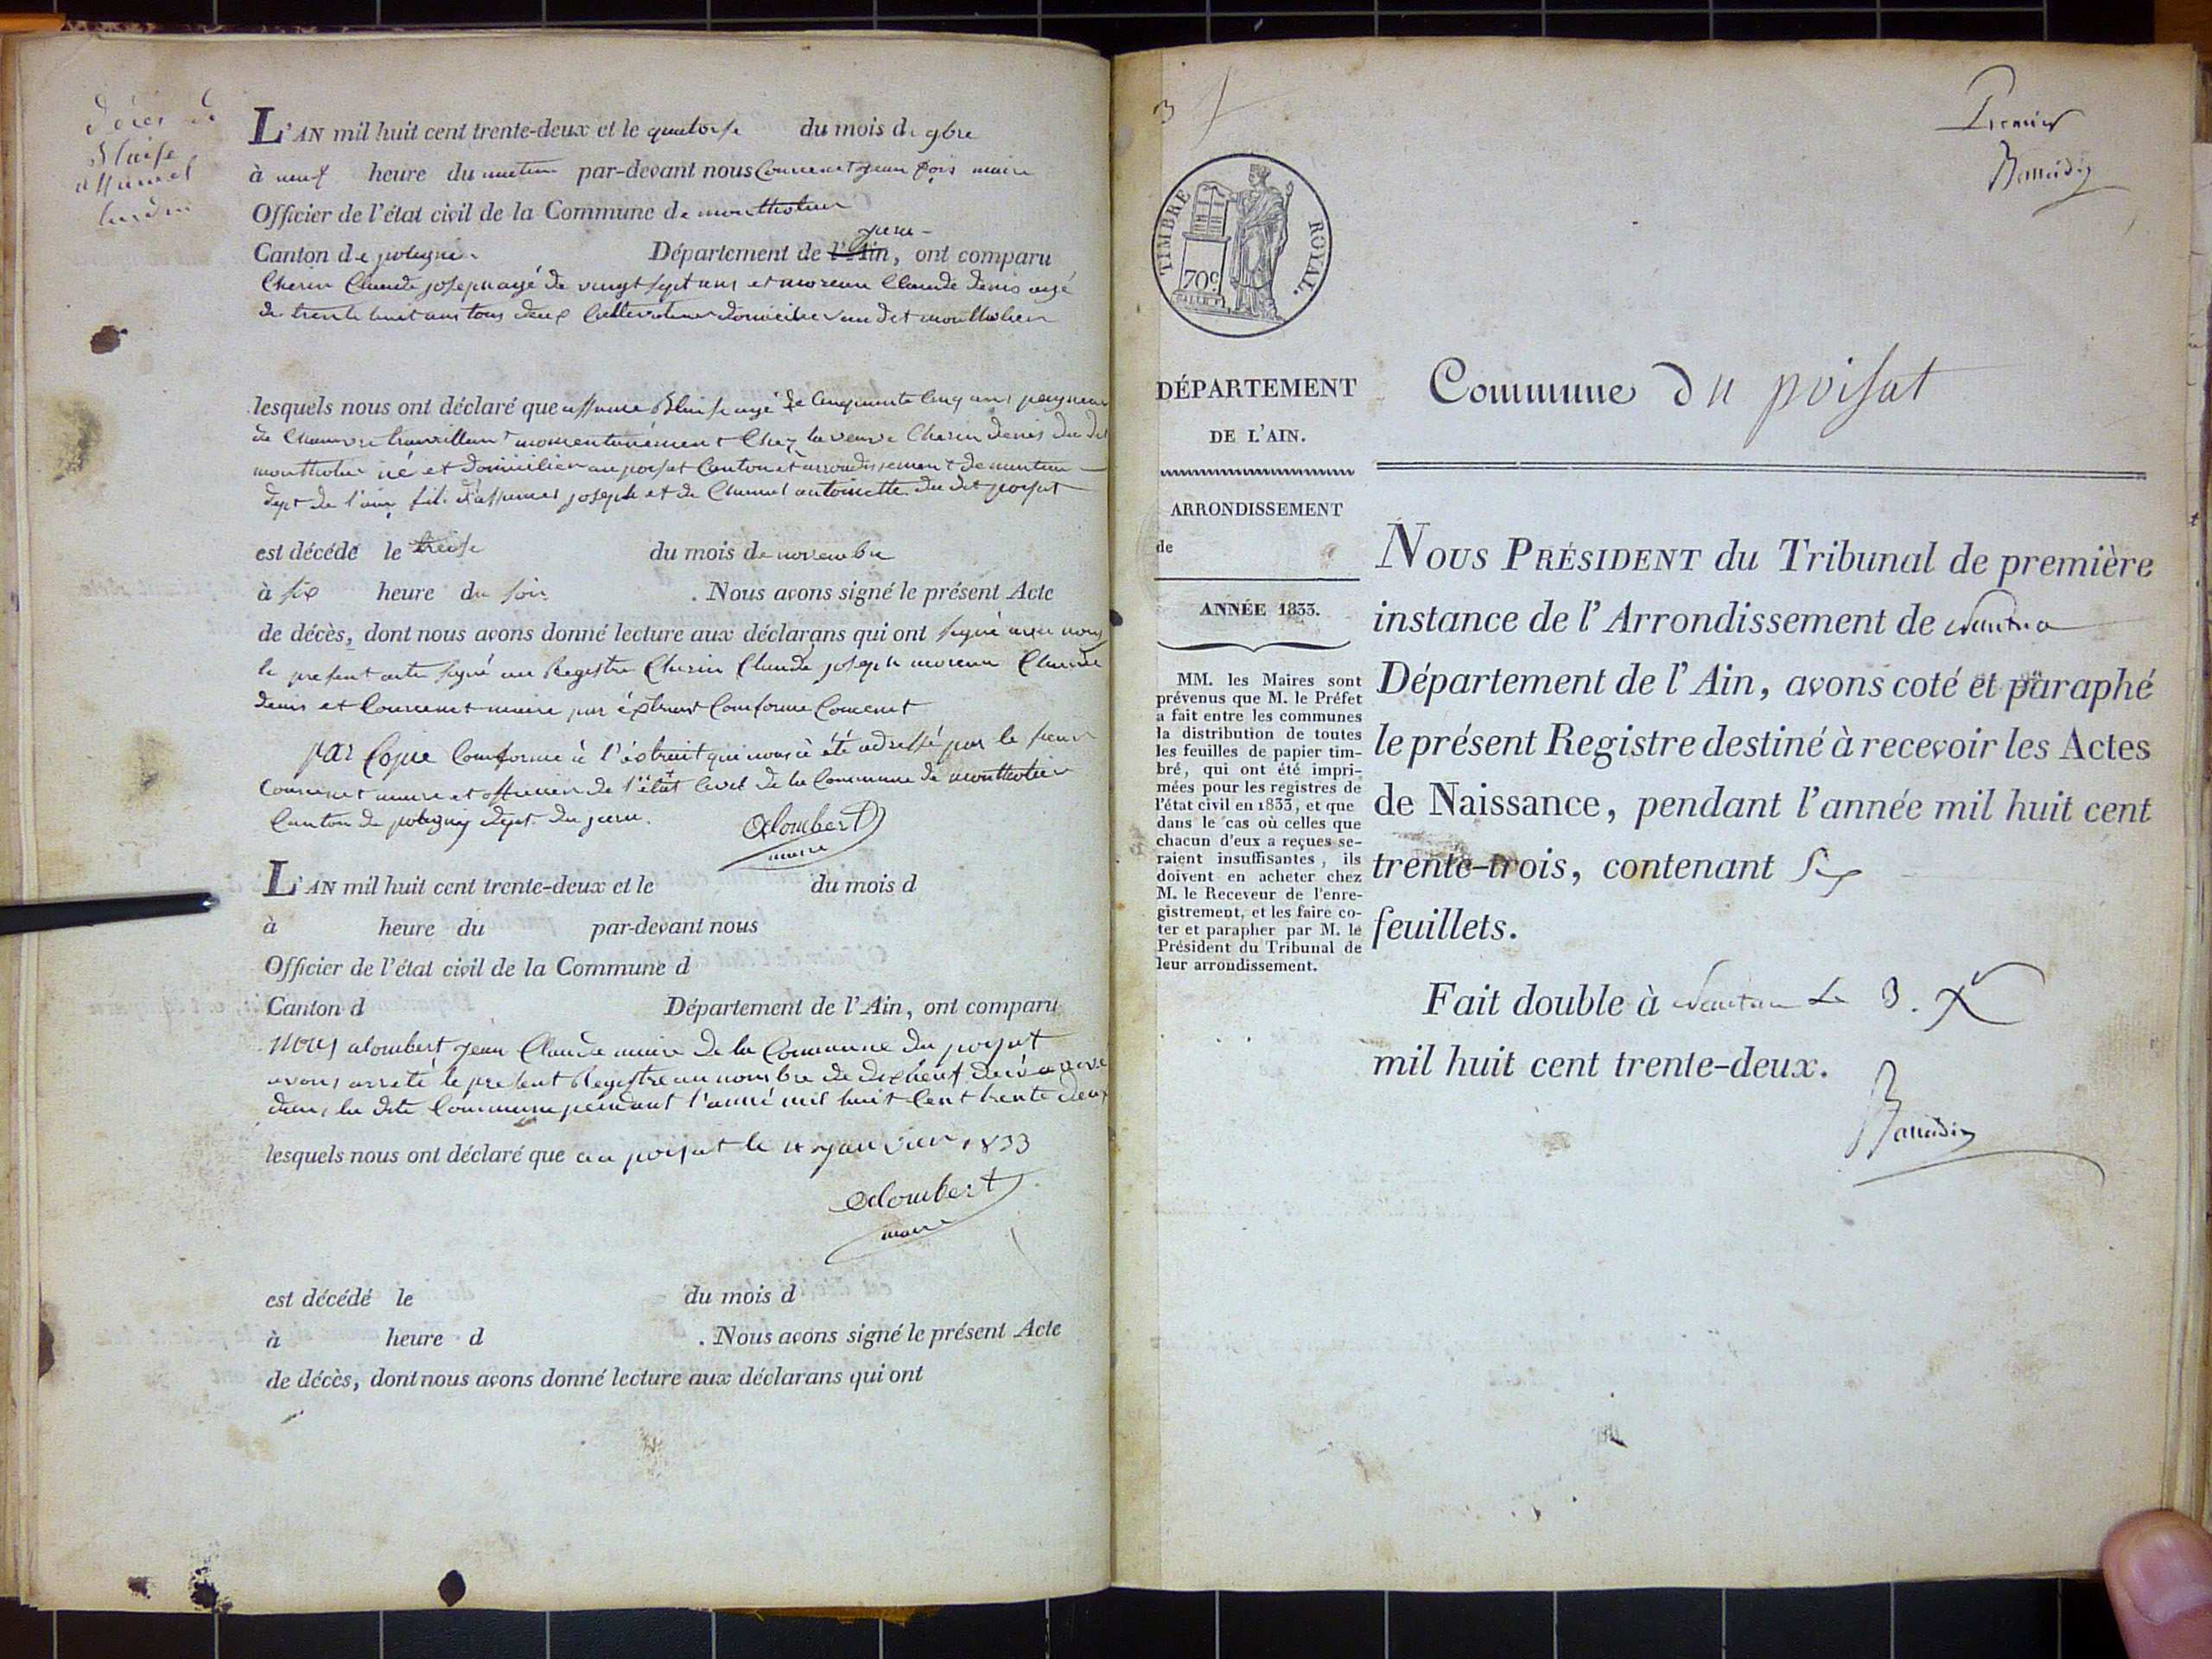 décès de
Blaise
assumel
L'AN mil huit cent trente-deux et le quatorse du mois de 9bre
à neuf heure du matin par-devant nous Courcenet jean fçois maire
Officier de l'état civil de la Commune de montholier
jura
Canton de poligni Département de l'Ain, ont comparu
Cherin Claude joseph agé de vingt sept ans et moreau Claude denis agé
de trente huit ans tous deux Cultivateur domicilié au dit montholier
lesquels nous ont déclaré que assumel Blaise agé de Cinquante Cinq ans peigneur
de Chanvre travillant momentanément Chez la veuve Cherin denis du dit
montholier né et domicilier au poisat Canton et arrondissement de nantua
dept de l'ain fils d'assumel joseph et de antoinette du dit poisat
est décédé le treise du mois de novembre
à six heure du soir . Nous avons signé le présent Acte
de décès, dont nous avons donné lecture aux déclarans qui ont signé avec nous
le present acte signé au Registre Cherin Claude joseph moreau Claude
denis et Courcenet maire par éxtrait Conforme Courcenet
par Copie Conforme à l'éxtrait qui nous à été adressé par le sieur
Courcenet maire et officier de l'état Civil de la Commune de montholier
Canton de poligny dept. du jura.
Alombert
maire
L'AN mil huit cent trente-deux et le du mois d
à heure du par-devant nous
Officier de l'état civil de la Commune d
Canton d Département de l'Ain, ont comparu
nous alombert jean Claude maire de la Commune du poisat
avons arreté le present Registre au nombre de dix heuf
dans la dite Commune pendant l'anné mil huit Cent trente deux
lesquels nous ont déclaré que au poisat le janvier 1833
Alombert
maire
est décédé le du mois d
à heure d . Nous avons signé le présent Acte
de décès, dont nous avons donné lecture aux déclarans qui ont
3
Premier
TIMBRE ROYAL.
70c
DÉPARTEMENT
DE L'AIN.
ARRONDISSEMENT
de
ANNÉE 1833.
MM. les Maires sont
prévenus que M. le Préfet
a fait entre les communes
la distribution de toutes
les feuilles de papier tim-
bré, qui ont été impri-
mées pour les registres de
l'état civil en 1833, et que
dans le cas où celles que
chacun d'eux a reçues se-
raient insuffisantes, ils
doivent en acheter chez
M. le Receveur de l'enre-
gistrement, et les faire co-
ter et parapher par M. le
Président du Tribunal de
leur arrondissement.
Commune du poisat
NOUS PRÉSIDENT du Tribunal de première
instance de l'Arrondissement de Nantua
Département de l'Ain, avons coté et paraphé
le présent Registre destiné à recevoir les Actes
de Naissance, pendant l'année mil huit cent
trente-trois, contenant Six
feuillets.
Fait double à Nantua Le 3. X
mil huit cent trente-deux.